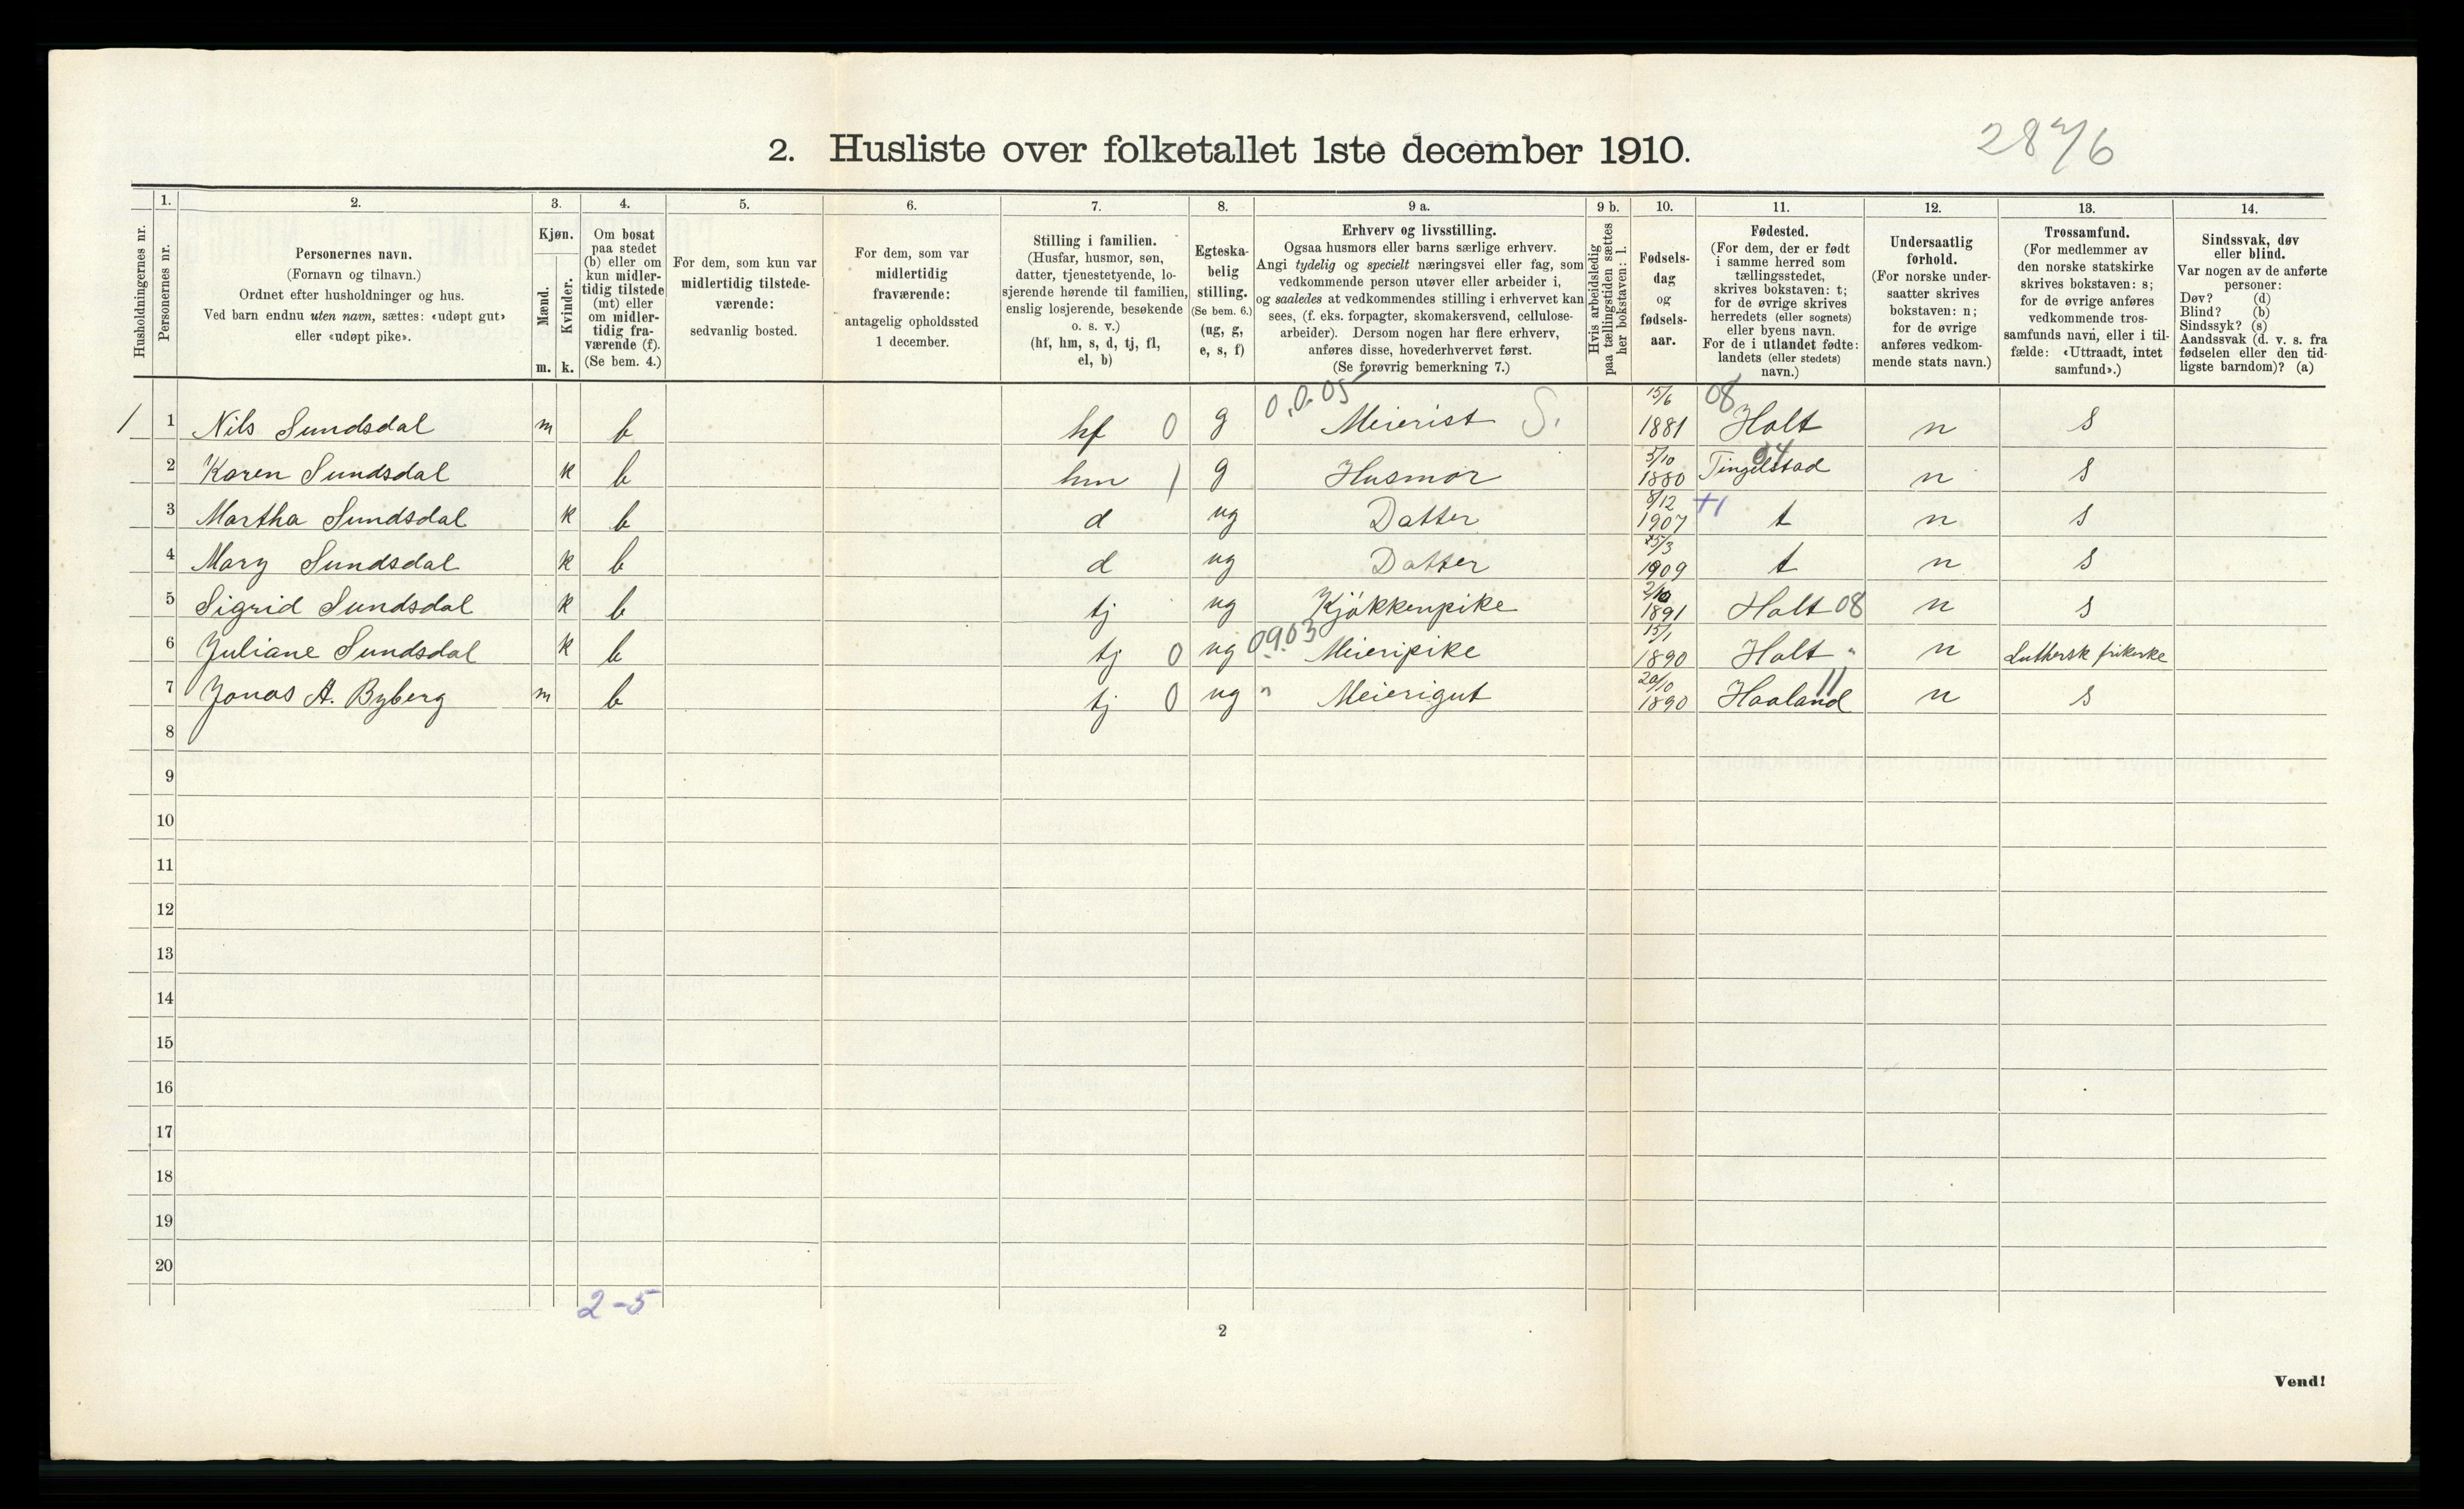 2. Husliste over folketallet 1ste december 1910.
Husholdningernes nr.
1. Personernes nr.
2.
Personernes navn.
(Fornavn og tilnavn.)
Ordnet efter husholdninger og hus.
Ved barn endnu uten navn, sættes: «udøpt gut»
eller «udøpt pike».
3.
Kjøn.
Mænd.
Kvinder.
m. k.
4.
Om bosat
paa stedet
(b) eller om
kun midler-
tidig tilstede
(mt) eller
om midler-
tidig fra-
værende (f).
(Se bem. 4.)
5.
For dem, som kun var
midlertidig tilstede-
værende:
sedvanlig bosted.
6.
For dem, som var
midlertidig
fraværende:
antagelig opholdssted
1 december.
7.
Stilling i familien.
(Husfar, husmor, søn,
datter, tjenestetyende, lo-
sjerende hørende til familien,
enslig losjerende, besøkende
o. s. v.)
(hf, hm, s, d, tj, fl,
el, b)
8.
Egteska-
belig
stilling.
(Se bem. 6.)
(ug, g,
e, s, f)
9 a.
Erhverv og livsstilling.
Ogsaa husmors eller barns særlige erhverv.
Angi tydelig og specielt næringsvei eller fag, som
vedkommende person utøver eller arbeider i,
og saaledes at vedkommendes stilling i erhvervet kan
sees, (f. eks. forpagter, skomakersvend, cellulose-
arbeider). Dersom nogen har flere erhverv,
anføres disse, hovederhvervet først.
(Se forøvrig bemerkning 7.)
9 b.
Hvis arbeidsledig
paa tællingstiden sættes
her bokstaven: l.
10.
Fødsels-
dag
og
fødsels-
aar.
11.
Fødested.
(For dem, der er født
i samme herred som
tællingsstedet,
skrives bokstaven: t;
for de øvrige skrives
herredets (eller sognets)
eller byens navn.
For de i utlandet fødte:
landets (eller stedets)
navn.)
12.
Undersaatlig
forhold.
(For norske under-
saatter skrives
bokstaven: n;
for de øvrige
anføres vedkom-
mende stats navn.)
13.
Trossamfund.
(For medlemmer av
den norske statskirke
skrives bokstaven: s;
for de øvrige anføres
vedkommende tros-
samfunds navn, eller i til-
fælde: «Uttraadt, intet
samfund».)
14.
Sindssvak, døv
eller blind.
Var nogen av de anførte
personer:
Døv? (d)
Blind? (b)
Sindssyk? (s)
Aandssvak (d. v. s. fra
fødselen eller den tid-
ligste barndom)? (a)
1 1 Nils Sundsdal m b hf 0 g 0.0.05 Meierist S. 15/6 1881 08 Holt n s
2 Karen Sundsdal k b hm 1 g Husmor 5/10 1880 Tingelstad n s
3 Martha Sundsdal k b d ug Datter 8/12 1907 t n s
4 Mary Sundsdal k b d ug Datter 25/3 1909 t n s
5 Sigrid Sundsdal k b tj ug Kjøkkenpike 2/10 1891 Holt 08 n s
6 Juliane Sundsdal k b tj 0 ug 09.03 Meieripike 15/1 1890 Holt " n Luthersk frikirke
7 Jonas A. Byberg m b tj 0 ug " Meierigut 20/10 1890 Haaland 11 n s
8
9
10
11
12
13
14
15
16
17
18
19
20
2-5
2
Vend!